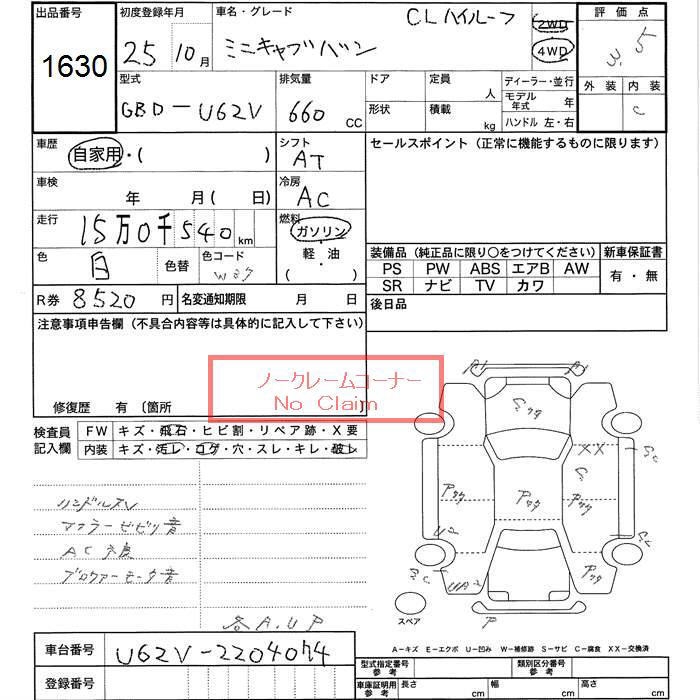 出品番号
1630
初度登録年月
25 10月
車名・グレード
CLハイルーフ
ミニキャブバン
2WD
4WD
評価点
3.5
型式
GBD-U62V
排気量
660 CC
ドア
定員
人
形状
積載
kg
ディーラー・並行
モデル年式 年
ハンドル 左・右
外装 内装
C
車歴
自家用・( )
シフト
AT
セールスポイント (正常に機能するものに限ります)
車検
年 月( 日)
冷房
AC
走行
15万0千540km
燃料
ガソリン
軽・油
( )
色
白
色替
色コード
W37
装備品 (純正品に限り○をつけてください)
新車保証書
PS PW ABS エアB AW
SR ナビ TV カワ
有・無
R券 8520円
名変通知期限 月 日
後日品
注意事項申告欄 (不具合内容等は具体的に記入して下さい)
ノークレームコーナー
No Claim
修復歴 有 〔箇所
検査員記入欄
FW キズ・飛石・ヒビ割・リペア跡・X要
内装 キズ・汚レ・コゲ・穴・スレ・キレ・破レ
ハンドルスレ
マフラービビリ音
AC不良
ブロワァーモータ音
各A.UP
A1
A1
XX
U2
UA2
P
スペア
A-キズ E-エクボ U-凹み W-補修跡 S-サビ C-腐食 XX-交換済
車台番号
U62V-2204074
登録番号
型式指定番号 参考
類別区分番号 参考
車庫証明用 参考
長さ cm
幅 cm
高さ cm